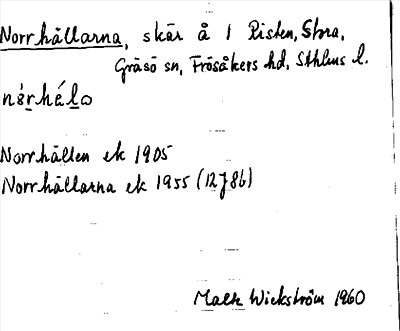 Norrhällarna, skär å 1 Risten, Stora,
Gräsö sn, Frösåkers hd, Sthlms l.
Norrhällen ek 1905
Norrhällarna ek 1955 (12J8b)
Wickström 1960